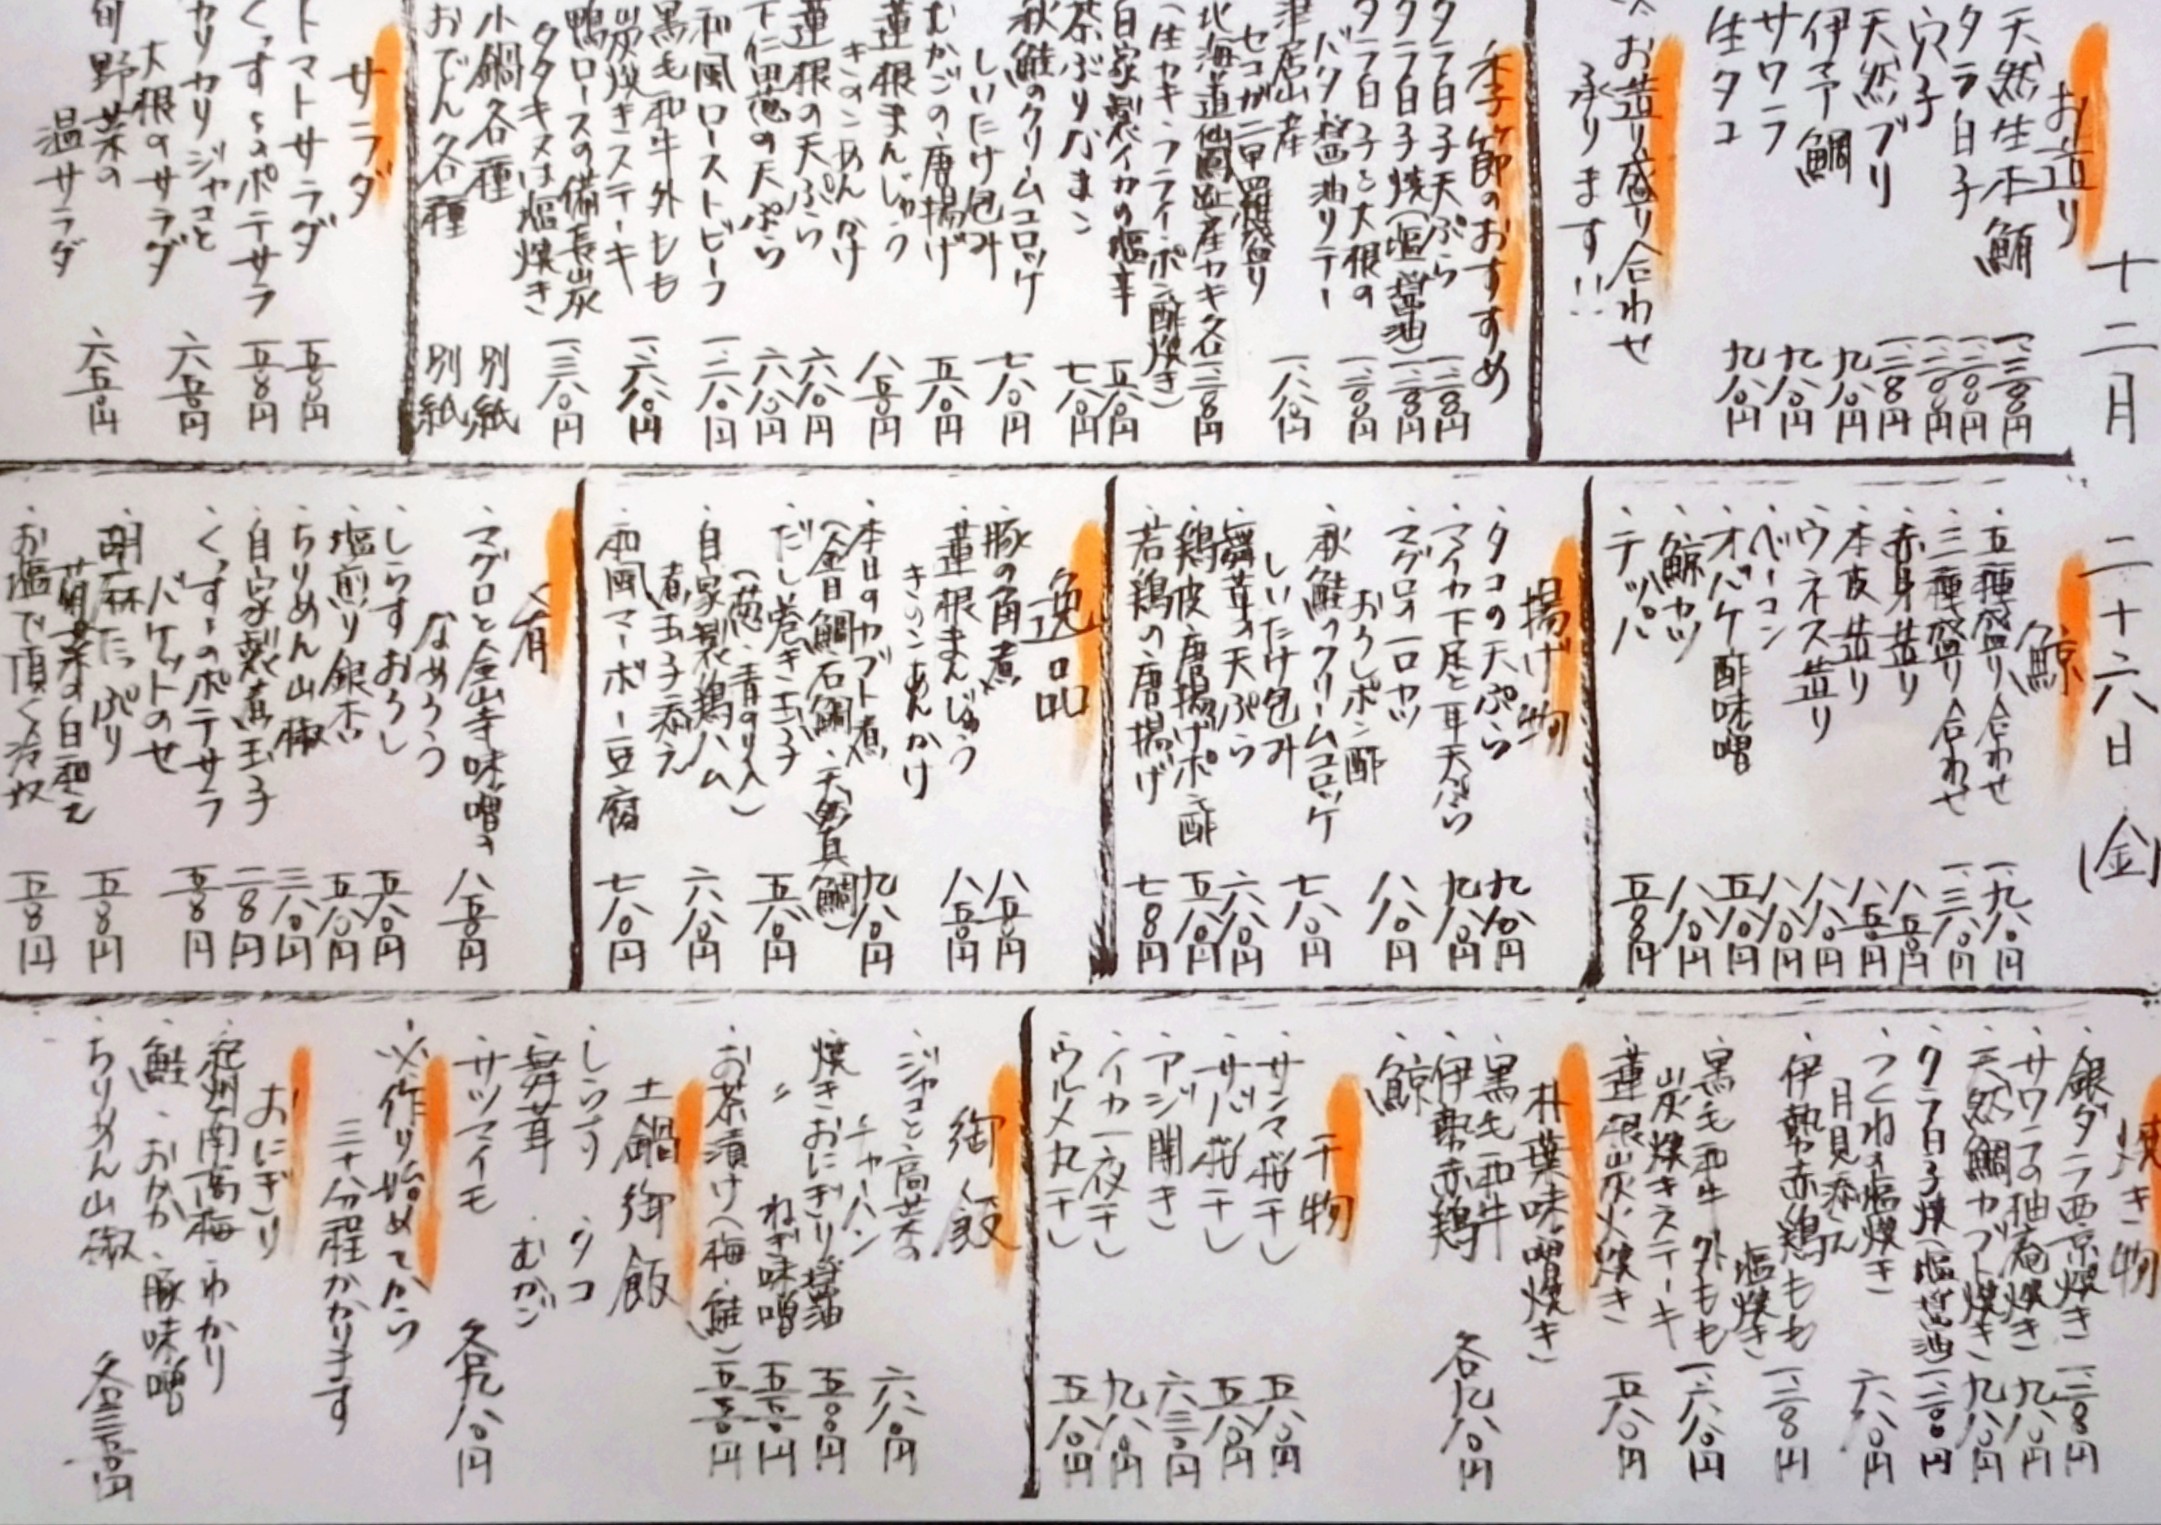 十二月 二十六日 (金)
お造り
天然生本鮪 一、三八〇円
タラ白子
穴子
天然ブリ
伊予鯛 九八〇円
サワラ 九八〇円
生タコ 九八〇円
お造り盛り合わせ
承ります!!
季節のおすすめ
タラ白子天ぷら
タラ白子焼(塩・醤油)
タラ白子と大根の
バタ醤油ソテー
津居山産
セコガニ甲羅盛り
北海道仙鳳趾産カキ各
(生カキ・フライ・ポン酢焼き)
自家製イカの塩辛 五八〇円
茶ぶりなまこ 七八〇円
秋鮭のクリームコロッケ
しいたけ包み 七八〇円
むかごの唐揚げ 五八〇円
蓮根まんじゅう
きのこあんかけ 八五〇円
蓮根の天ぷら 六八〇円
下仁田葱の天ぷら 六八〇円
和風ローストビーフ 一、二八〇円
黒毛和牛外もも
炭焼きステーキ 一、六八〇円
鴨ロースの備長炭
タタキ又は塩焼き 一、三八〇円
小鍋各種 別紙
おでん各種 別紙
サラダ
トマトサラダ 五八〇円
くっすーのポテサラ 五八〇円
カリカリジャコと
大根のサラダ 六八〇円
旬野菜の
温サラダ 六五〇円
鯨
五種盛り合わせ 一、九八〇円
三種盛り合わせ 一、三八〇円
赤身造り 八五〇円
本皮造り 八五〇円
ウネス造り 八八〇円
ベーコン 八八〇円
オバケ酢味噌 五八〇円
鯨カツ 八八〇円
テッパ 五八〇円
揚げ物
タコの天ぷら 九八〇円
マイカ下足と耳天ぷら 九八〇円
マグロの一口カツ
おろしポン酢 八八〇円
秋鮭のクリームコロッケ
しいたけ包み 七八〇円
舞茸の天ぷら 六八〇円
鶏皮唐揚げポン酢 五八〇円
若鶏の唐揚げ 七八〇円
逸品
豚の角煮 八五〇円
蓮根まんじゅう
きのこあんかけ 八五〇円
本日のカブト煮 九八〇円
(金目鯛・石鯛・天然真鯛)
だし巻き玉子
(葱・青のり入) 五八〇円
自家製鶏ハム
煮玉子添え 六八〇円
和風マーボー豆腐 七八〇円
肴
マグロと金山寺味噌の
なめろう 八五〇円
しらすおろし 五八〇円
塩煎り銀杏 五八〇円
ちりめん山椒 三八〇円
自家製煮玉子 二八〇円
くっすーのポテサラ
バケットのせ 五八〇円
胡麻たっぷり
菊菜の白和え 五八〇円
お塩で頂く冷奴 五八〇円
焼き物
銀ダラ西京焼き 一、二八〇円
サワラの柚庵焼き 九八〇円
天然鯛カブト焼き 九八〇円
タラ白子焼(塩・醤油)
つくねの塩焼き
月見添え 六八〇円
伊勢赤鶏もも
塩焼き 一、二八〇円
黒毛和牛外もも
炭焼きステーキ 一、六八〇円
蓮根炭火焼き 五八〇円
朴葉味噌焼き
黒毛和牛
伊勢赤鶏
鯨 各九八〇円
干物
サンマ桜干し 五八〇円
サバ桜干し 五八〇円
アジ開き 六三〇円
イカ一夜干し 九八〇円
ウルメ丸干し 五八〇円
御飯
ジャコと高菜の
チャーハン 六八〇円
焼きおにぎり 醤油 五〇〇円
〃 ねぎ味噌 五五〇円
お茶漬け(梅・鮭) 五五〇円
土鍋御飯
しらす タコ
舞茸 むかご
サツマイモ 各九八〇円
※作り始めてから
三十分程かかります
おにぎり
紀州南高梅・わかり
鮭・おかか・豚味噌
ちりめん山椒 各三五〇円